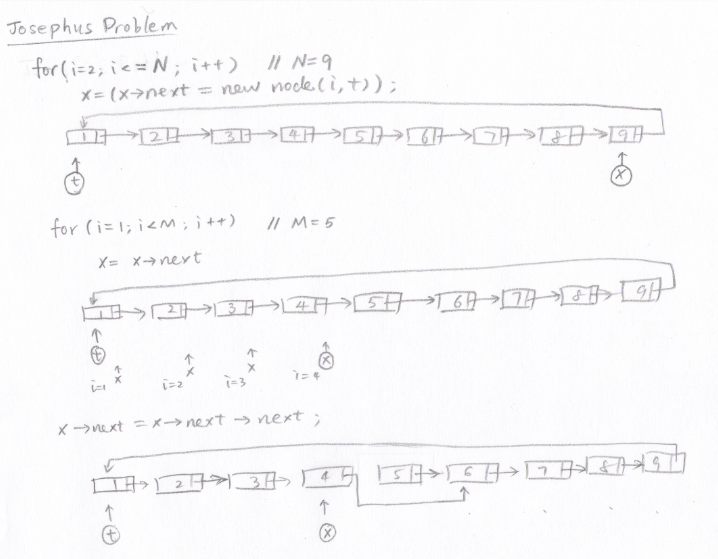 Josephus Problem
for(i=2; i<=N; i++) // N=9
x=(x→next = new node(i,t));
1 2 3 4 5 6 7 8 9
t x
for (i=1; i<M; i++) // M=5
x= x→next
1 2 3 4 5 6 7 8 9
t x
i=1 x i=2 x i=3 x i=4
x→next = x→next→next;
1 2 3 4 5 6 7 8 9
t x